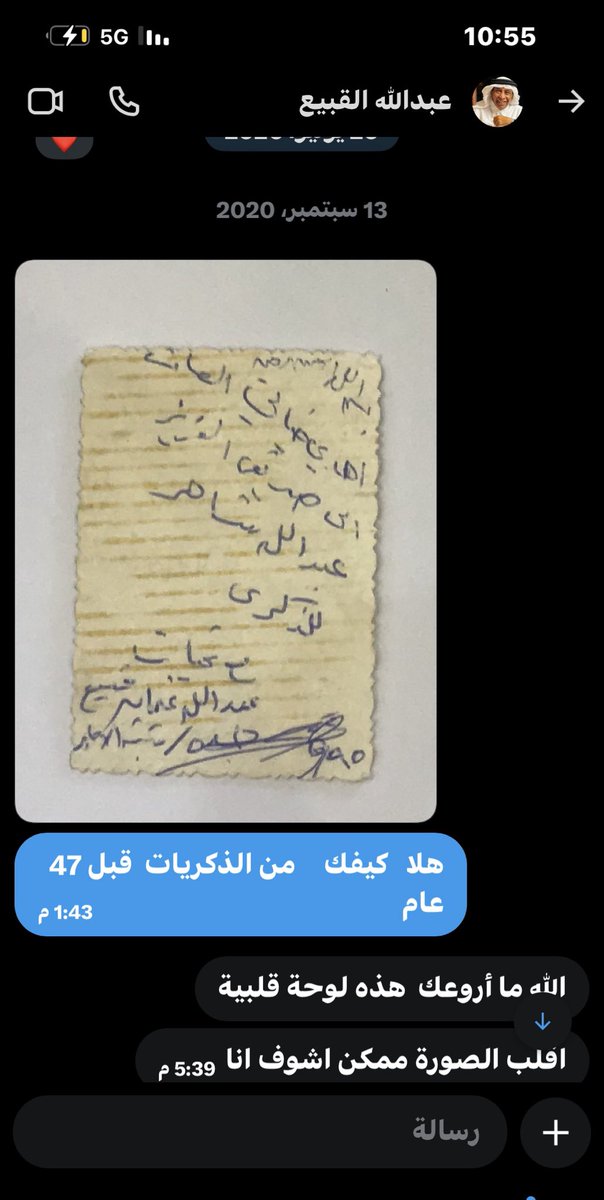 10:55
5G
عبدالله القبيع
13 سبتمبر، 2020
اهدي خيالي الصامت
الى صديقي العزيز
عبدالله شاهر
للذكرى
مع تحيات
عبدالله
هلا كيفك من الذكريات قبل 47
عام
1:43 م
الله ما أروعك هذه لوحة قلبية
اقلب الصورة ممكن اشوف انا
5:39 م
رسالة